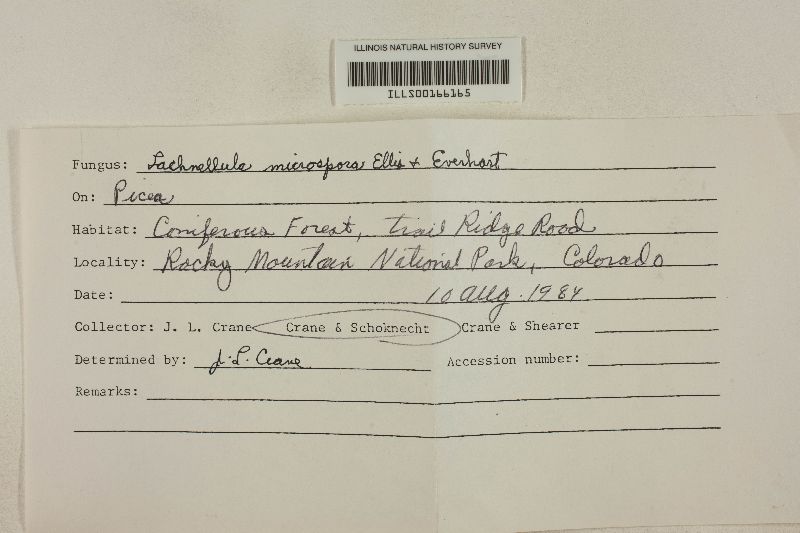 ILLINOIS NATURAL HISTORY SURVEY
ILLS00166165
Fungus: Lachnellula microspora Ellis & Everhart
On: Picea
Habitat: Coniferous Forest, Trail Ridge Road
Locality: Rocky Mountain National Park, Colorado
Date: 10 Aug. 1984
Collector: J. L. Crane Crane & Schoknecht Crane & Shearer
Determined by: J. L. Crane Accession number:
Remarks: